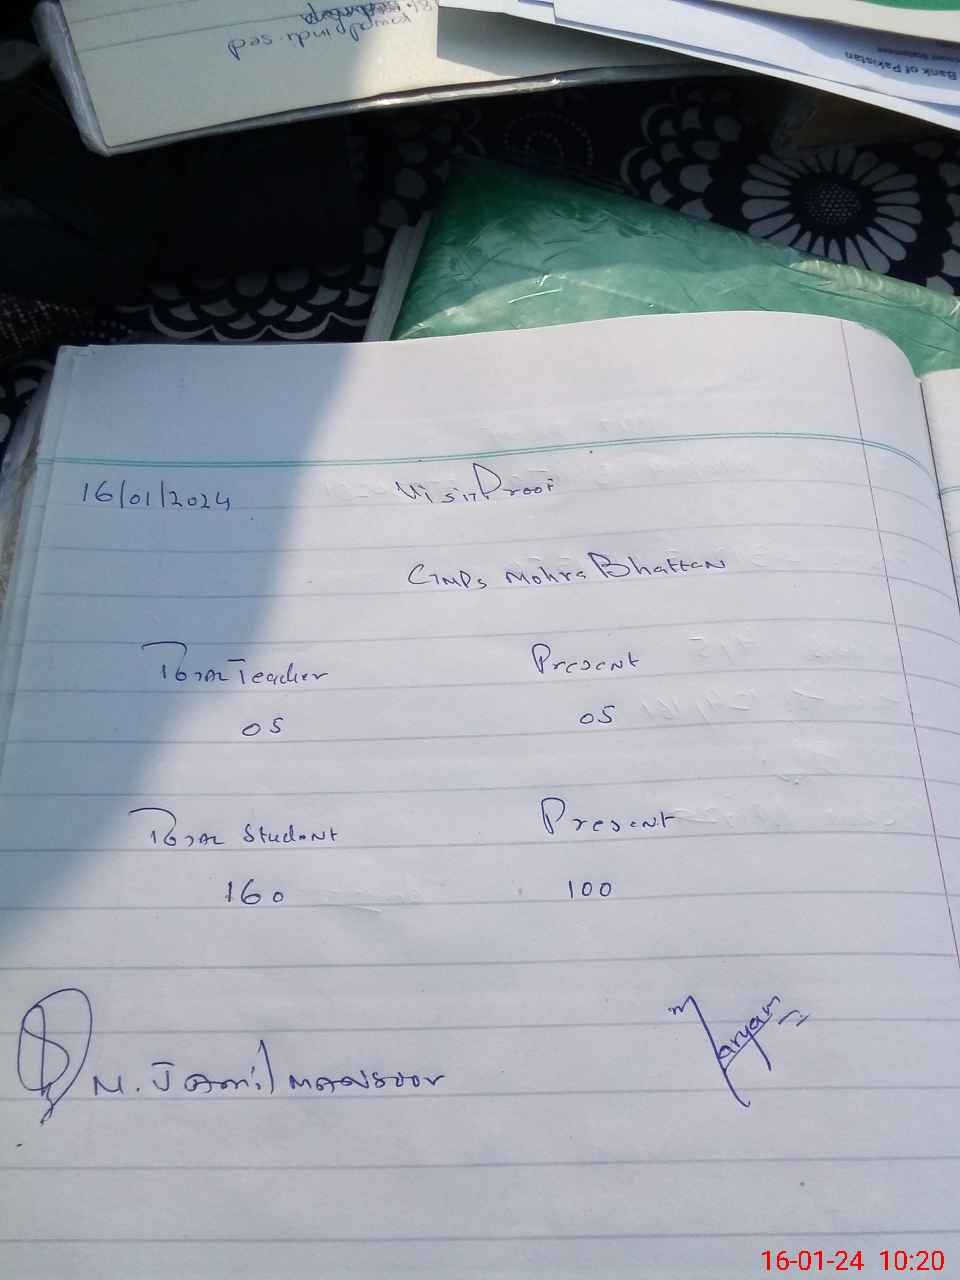 Bank of Pakistan
16/01/2024 Visit Proof
GMPS Mohra Bhattan
Total Teacher Present
05 05
Total Student Present
160 100
M. Jamil mansoor Maryam
16-01-24 10:20